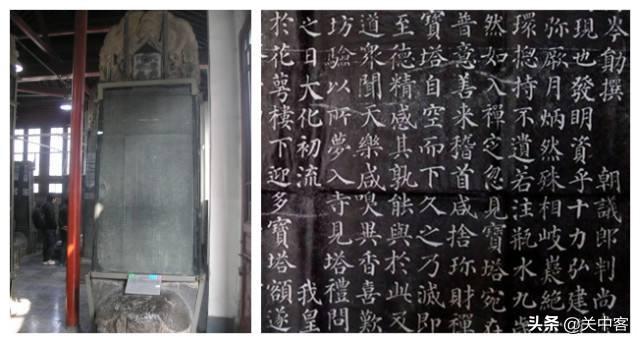 岑勛撰 朝議郎判尚
現也發明資乎十力弘建
彌厥月炳然殊相岐嶷絕
環揔持不遺若注瓶水九歲
然如入禪定忽見寶塔宛在
普意善來稽首咸捨珎財禪
寶塔自空而下久之乃滅即
至德精感其孰能與於此又
道衆聞天樂咸嗅異香喜歎
坊驗以所夢入寺見塔禮問
之日大化初流 我皇
於花萼樓下迎多寶塔額遂
头条 @关中客